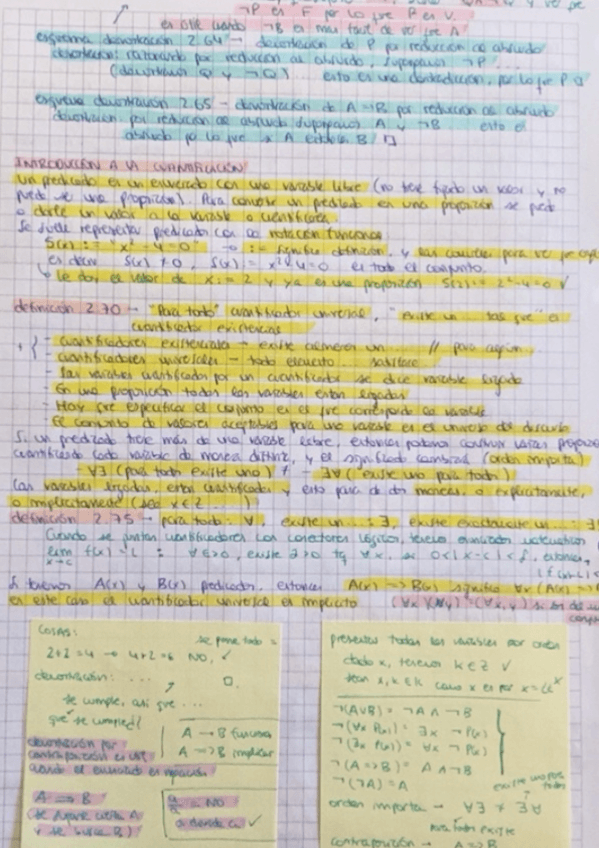 ¬P es F por lo que P es V.
es útil cuando ¬B es más fácil de ver que A
esquema demostración 2.64 - demostración de P por reducción al absurdo
demostración: razonando por reducción al absurdo, supongamos ¬P ...
(demostración Q y ¬Q) ... esto es una contradicción, por lo que P □
esquema demostración 2.65 - demostración de A ⇒ B por reducción al absurdo
demostración por reducción al absurdo supongamos A y ¬B esto es
absurdo por lo que si A entonces B □
INTRODUCCIÓN A LA CUANTIFICACIÓN
un predicado es un enunciado con una variable libre (no tiene fijado un valor y no
puede ser una proposición). Para convertir un predicado en una proposición se puede
o darle un valor a la variable o cuantificarla
Se suele representar predicados con la notación funcional
S(x) := "x² - 4 = 0" → := significa definición, y las comillas para ver
es decir S(x) ≠ 0, S(x) = x² - 4 = 0 es todo el conjunto.
↳ le doy el valor de x := 2 y ya es una proposición S(2) := 2² - 4 = 0 ✓
definición 2.70 - "Para todo" cuantificador universal, "existe un ... tal que" es
cuantificador existencial
- cuantificadores existenciales - existe al menos un ... // para algún
- cuantificadores universales - todo elemento ... satisface
- Las variables cuantificadas por un cuantificador se dice variable ligada
- En una proposición todas las variables están ligadas
- Hay que especificar el conjunto en el que corresponde la variable
El conjunto de valores aceptables para una variable es el universo del discurso
Si un predicado tiene más de una variable libre, entonces podemos construir varias
cuantificando cada variable de manera distinta, y el significado cambiará (orden importa)
∀∃ (para todo existe uno) ≠ ∃∀ (existe uno para todo)
Las variables ligadas, están cuantificadas y esto pasa de dos maneras, o explícitamente,
o implícitamente (sea x ∈ Z ...)
definición 2.75 - para todo: ∀, existe un ... : ∃, existe exactamente un ... : ∃!
Cuando se juntan cuantificadores con conectores lógicos, tenemos enunciados matemáticos
lim f(x) = L : ∀ε>0, existe δ>0 tq ∀x, si 0<|x-c|<δ, entonces,
x→c
Si tenemos A(x) y B(x) predicados, entonces A(x) ⇒ B(x) significa ∀x (A(x) ⇒
en este caso el cuantificador universal es implícito (∀x)(∀y) = (∀x,y) si son del
COSAS:
se pone todo =
2+2=4 → 4+2=6 NO, ✓
demostración: ... □.
se cumple, así que ...
qué se cumple??
A → B funciones
A ⇒ B implicar
demostración por
contraposición es útil
cuando el enunciado es negación
A ⇒ B
(se supone cierta A
y se busca B)
= NO
a divide a ✓
presentar todas las variables por orden
dado x, tenemos k ∈ Z ✓
¬(A∨B) = ¬A ∧ ¬B
¬(∀x P(x)) = ∃x ¬P(x)
¬(∃x P(x)) = ∀x ¬P(x)
¬(A ⇒ B) = A ∧ ¬B
¬(¬A) = A
existe uno para
todos
orden importa - ∀∃ ≠ ∃∀
para todos existe
contraposición - A ⇒ B